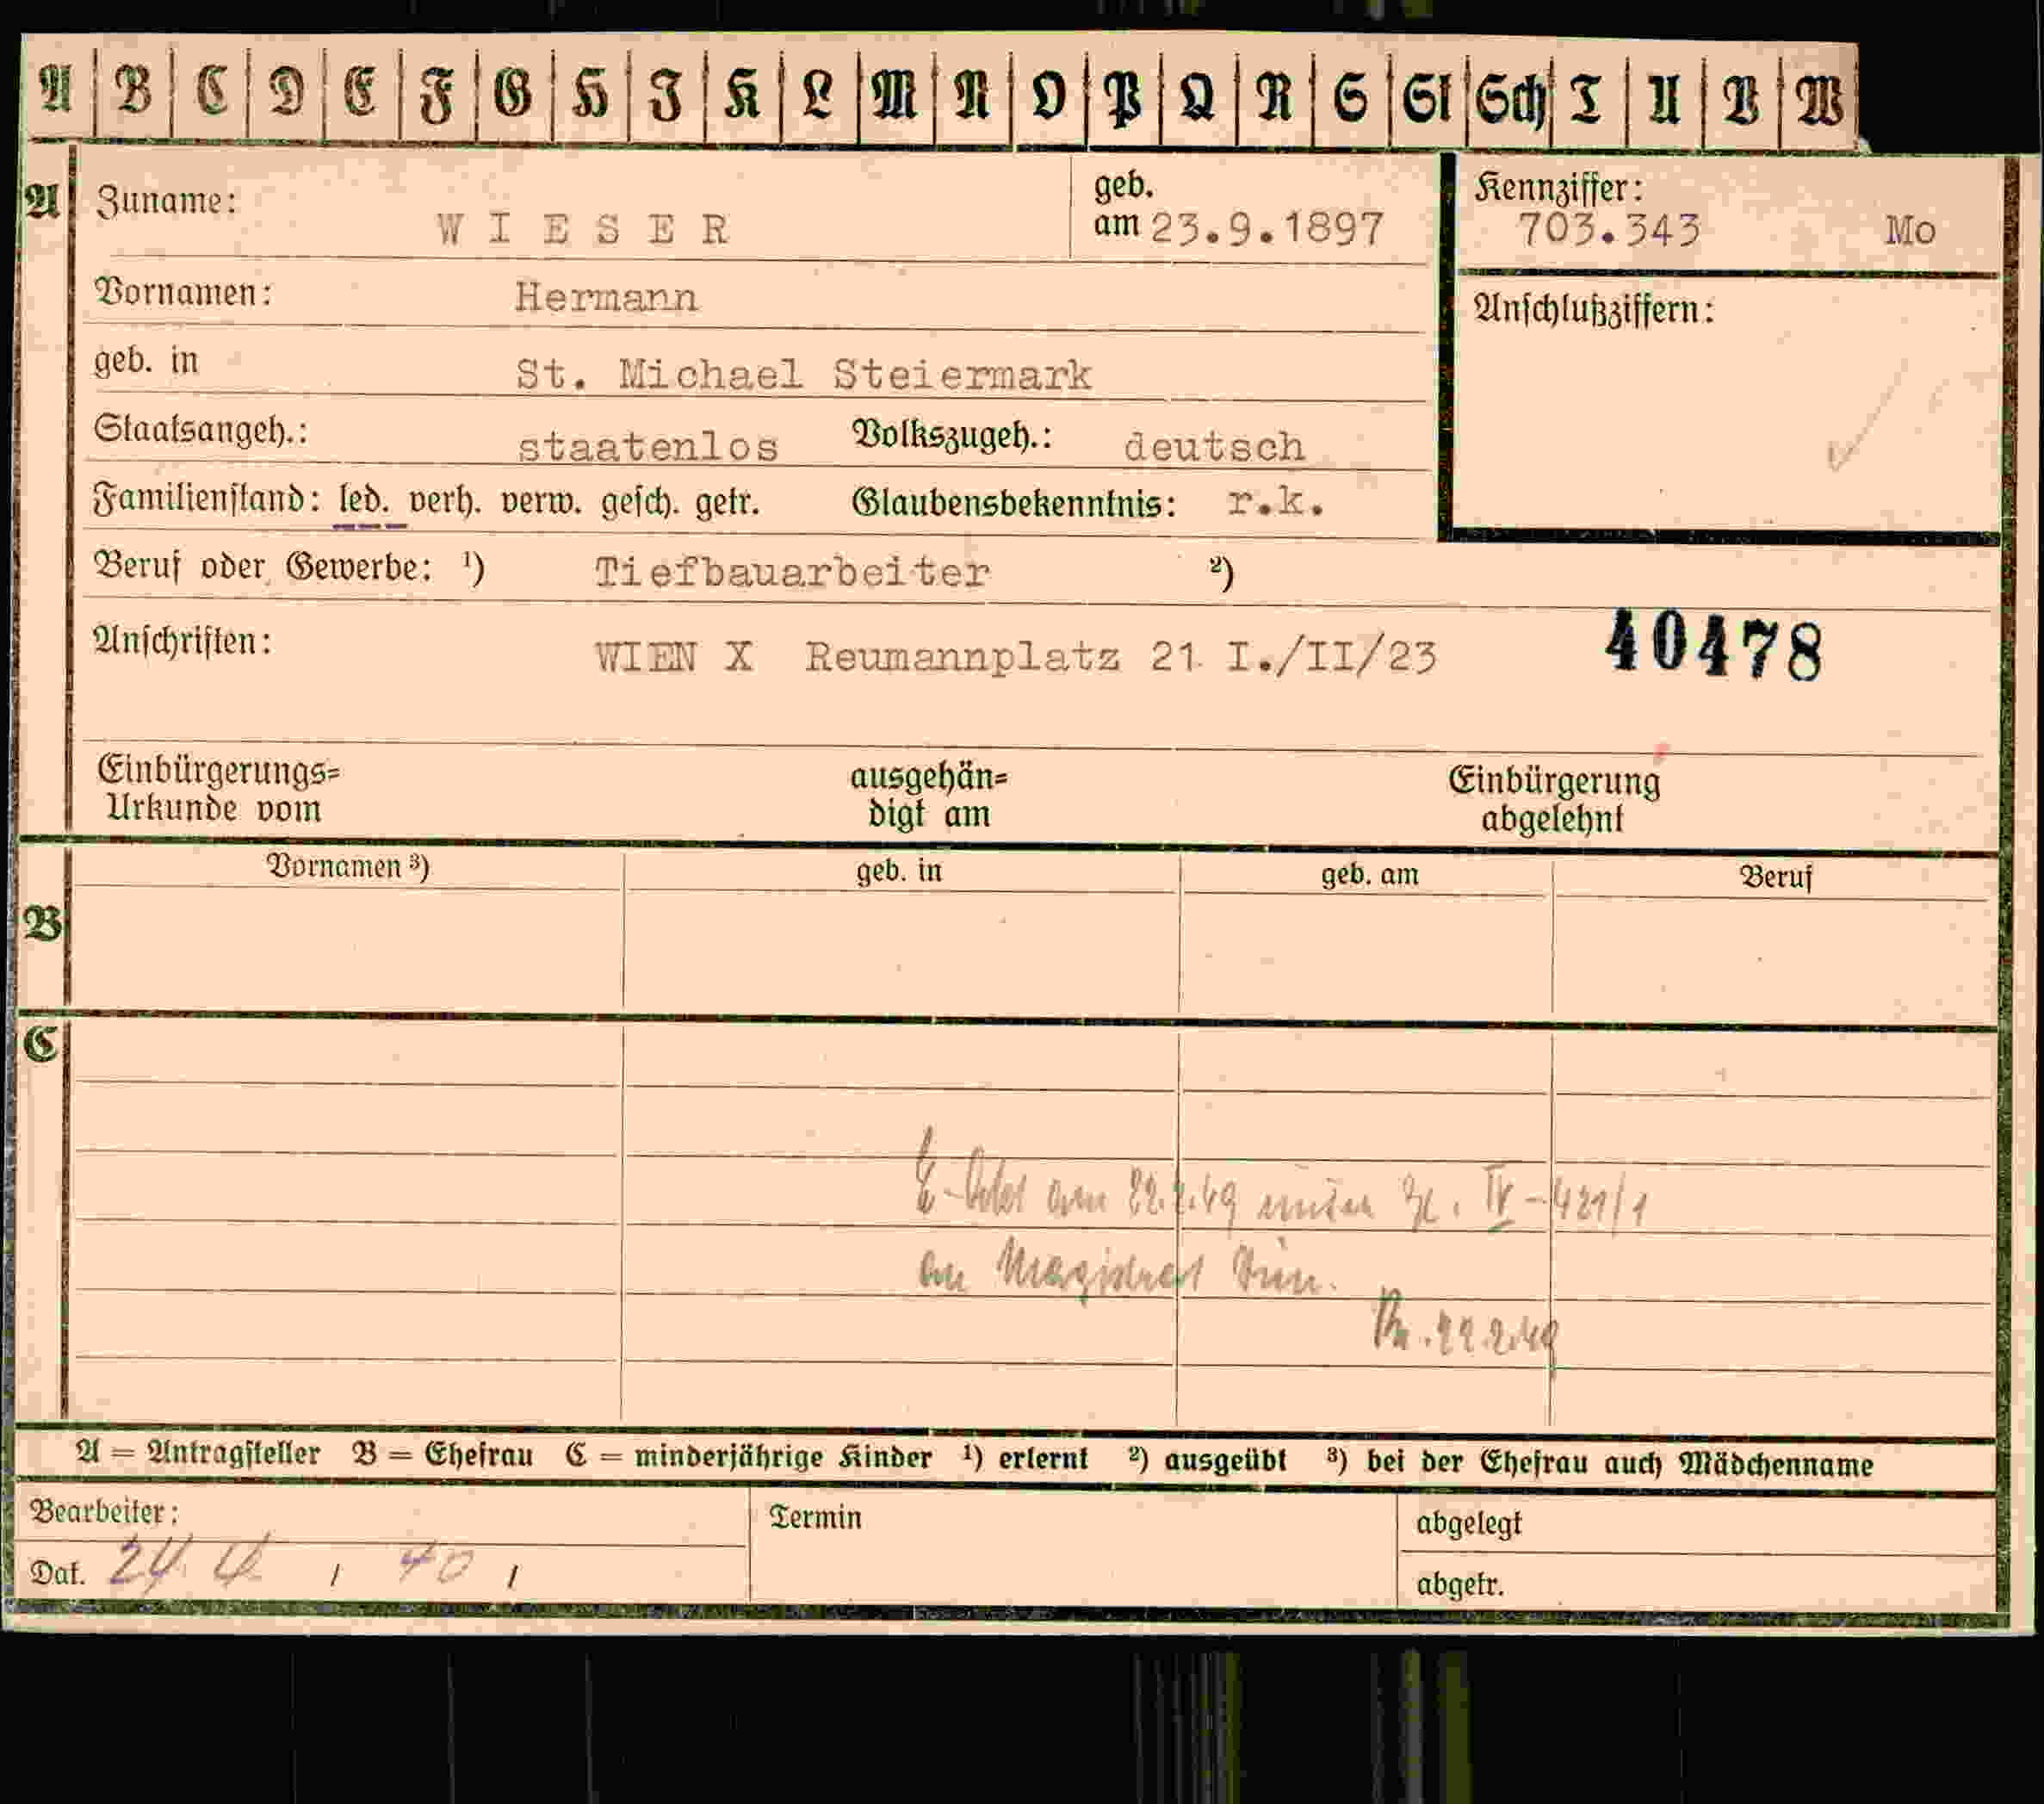 A B C D E F G H J K L M N O P Q R S St Sch T U V W
A Zuname: W I E S E R geb. am 23.9.1897 Kennziffer: 703.343 Mo
Vornamen: Hermann Anschlußziffern:
geb. in St. Michael Steiermark
Staatsangeh.: staatenlos Volkszugeh.: deutsch
Familienstand: led. verh. verw. gesch. getr. Glaubensbekenntnis: r.k.
Beruf oder Gewerbe: ¹) Tiefbauarbeiter ²)
Anschriften: WIEN X Reumannplatz 21 I./II/23 40478
Einbürgerungs= ausgehän= Einbürgerung
Urkunde vom digt am abgelehnt
Vornamen ³) geb. in geb. am Beruf
B
C
am 22.2.49 unter Zl. IV-421/1
an Magistrat Wien.
22.2.49
A = Antragsteller B = Ehefrau C = minderjährige Kinder ¹) erlernt ²) ausgeübt ³) bei der Ehefrau auch Mädchenname
Bearbeiter: Termin abgelegt
Dat. 24 4 / 40 / abgetr.